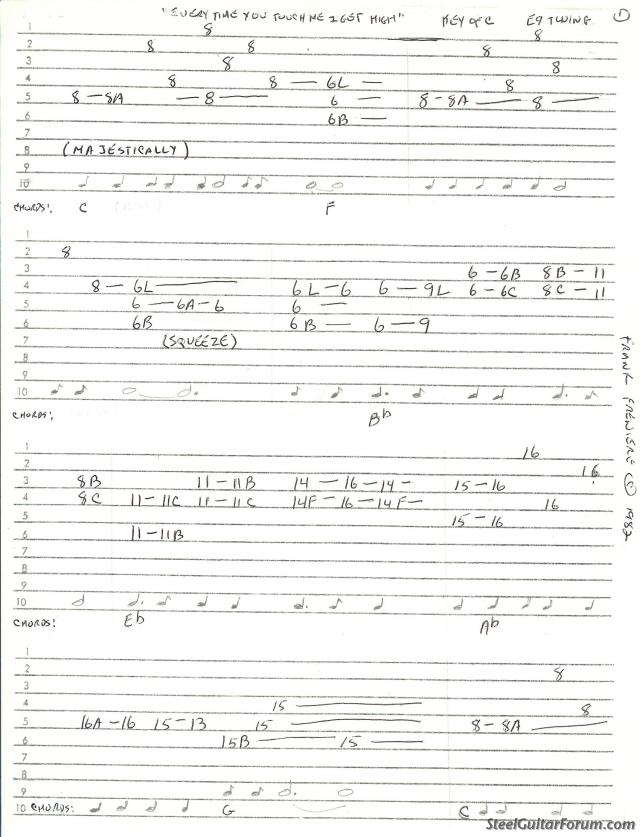 "EVERY TIME YOU TOUCH ME I GET HIGH" KEY OF C E9 TUNING 1
1 8
2 8 8 8 8
3 8 8
4 8 8 — 6L — 8
5 8 — 8A — 8 — 6 — 8 - 8A — 8 —
6 6B —
7
8 (MAJESTICALLY)
9
10
CHORDS: C F
1
2 8
3 6 - 6B 8B - 11
4 8 — 6L — 6L - 6 6 - 9L 6 - 6C 8C - 11
5 6 — 6A - 6 6 —
6 6B 6B — 6 — 9
7 (SQUEEZE)
8
9
10
CHORDS: Bb
FRANK FRENIERE © 1982
1 16
2 16
3 8B 11 - 11B 14 — 16 — 14 — 15 - 16
4 8C 11 - 11C 11 - 11C 14F — 16 — 14F — 16
5 15 - 16
6 11 - 11B
7
8
9
10
CHORDS: Eb Ab
1
2 8
3
4 15 — 8
5 16A - 16 15 - 13 15 — 8 - 8A —
6 15B — 15 —
7
8
9
10 CHORDS: G C
SteelGuitarForum.com